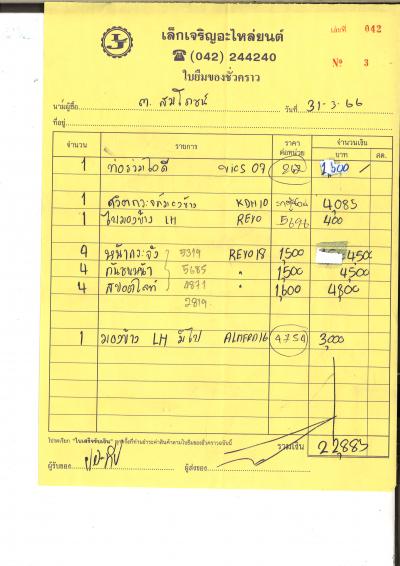 เล็กเจริญอะไหล่ยนต์
เล่มที่ 042
☎ (042) 244240
ใบยืมของชั่วคราว
Nº 3
นามผู้ซื้อ ต. สมโภชน์ วันที่ 31-3-66
ที่อยู่
จำนวน รายการ ราคาต่อหน่วย จำนวนเงิน
บาท สต.
1 ท่อร่วมไอดี vios 07 262 1,500
1 KDH10 4,083
1 ไฟมองข้าง LH REVO 5696 400
4 หน้ากระจัง 5319 REVO18 1,500 4500
4 กันชนหน้า 5685 " 1,500 4500
4 สปอตไลท์ 4871 " 1,600 4,800
2819
1 มองข้าง LH มีไฟ ALMERA16 4754 3,000
โปรดเรียก "ใบเสร็จรับเงิน" ทุกครั้งที่ท่านชำระค่าสินค้าตามใบยืมของชั่วคราวฉบับนี้
รวมเงิน 22,883
ผู้รับของ ผู้ส่งของ